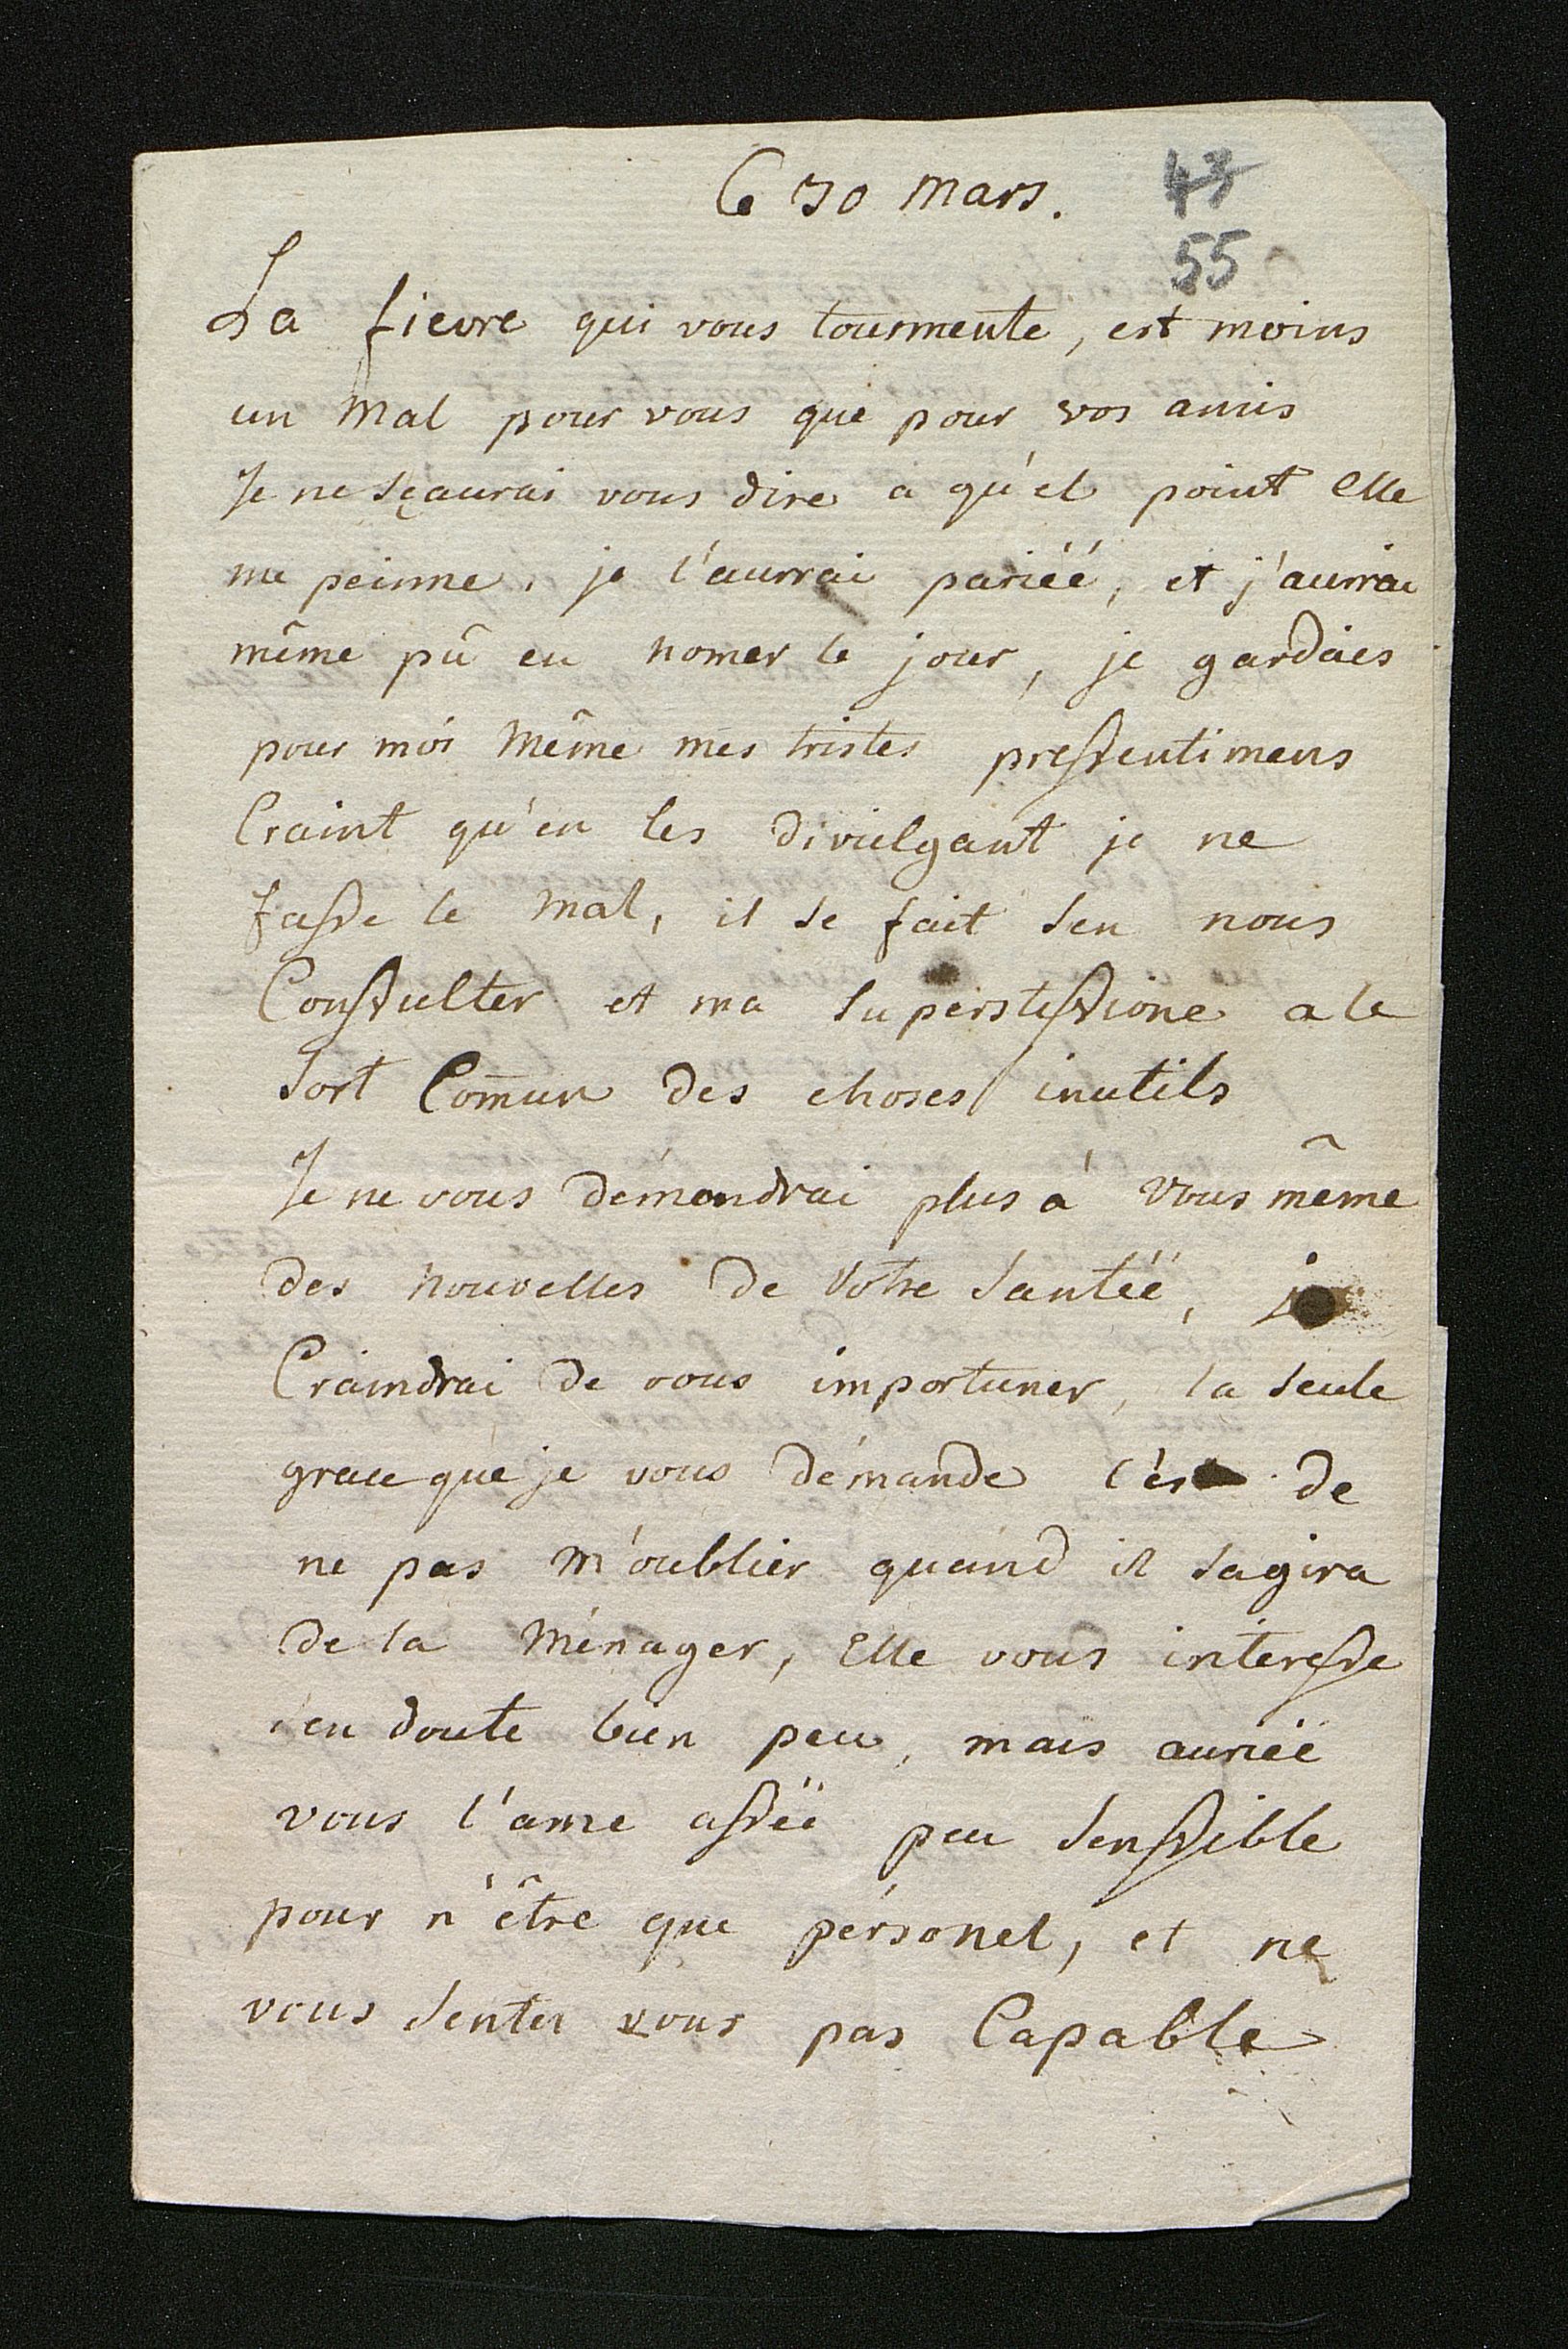 Ce 30 mars.
43
55
La fievre qui vous tourmente, est moins
un mal pour vous que pour vos amis
Je ne sçaurai vous dire a qu'el point elle
me peinne, je l'aurrai pariéé, et j'aurrai
même pû en nomer le jour, je gardaies
pour moi même mes tristes pressentimens
Craint qu'en les divulgant je ne
fasse le mal, il se fait sen nous
Conssulter et ma superstissione a le
sort Com̄un des choses inutils
Je ne vous démendrai plus à vous même
des nouvelles de votre santéé, je
Craindrai de vous importuner, la seule
grace que je vous démande c'ést de
ne pas m'oublier quand il sagira
de la ménager, Elle vous interesse
sen doute bien peu, mais auriéé
vous l'ame asséé peu senssible
pour n'être que pérsonel, et ne
vous sentez vous pas Capable